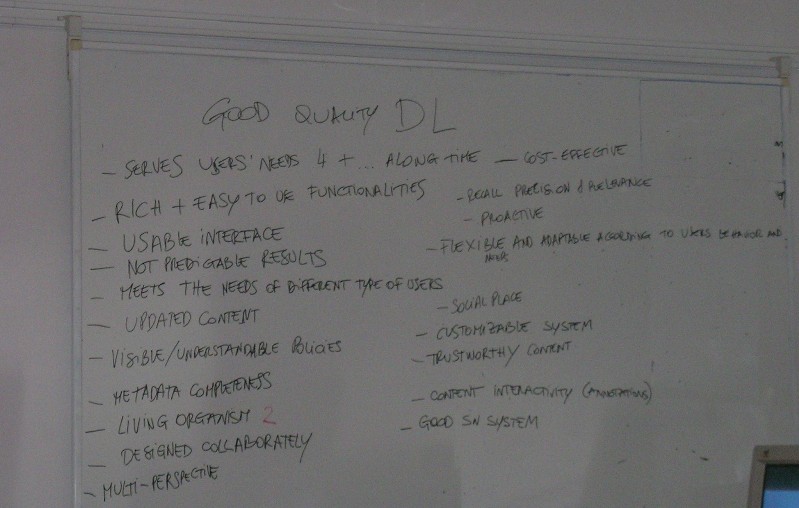 GOOD QUALITY DL
- SERVES USERS' NEEDS 4 + ... ALONG TIME - COST-EFFECTIVE
- RICH + EASY TO USE FUNCTIONALITIES
- USABLE INTERFACE
- NOT PREDICTABLE RESULTS
- MEETS THE NEEDS OF DIFFERENT TYPE OF USERS
- UPDATED CONTENT
- VISIBLE/UNDERSTANDABLE POLICIES
- METADATA COMPLETENESS
- LIVING ORGANISM 2
- DESIGNED COLLABORATELY
- MULTI-PERSPECTIVE
- RECALL PRECISION & RELEVANCE
- PROACTIVE
- FLEXIBLE AND ADAPTABLE ACCORDING TO USERS BEHAVIOR AND
NEEDS
- SOCIAL PLACE
- CUSTOMIZABLE SYSTEM
- TRUSTWORTHY CONTENT
- CONTENT INTERACTIVITY (ANNOTATIONS)
- GOOD SW SYSTEM